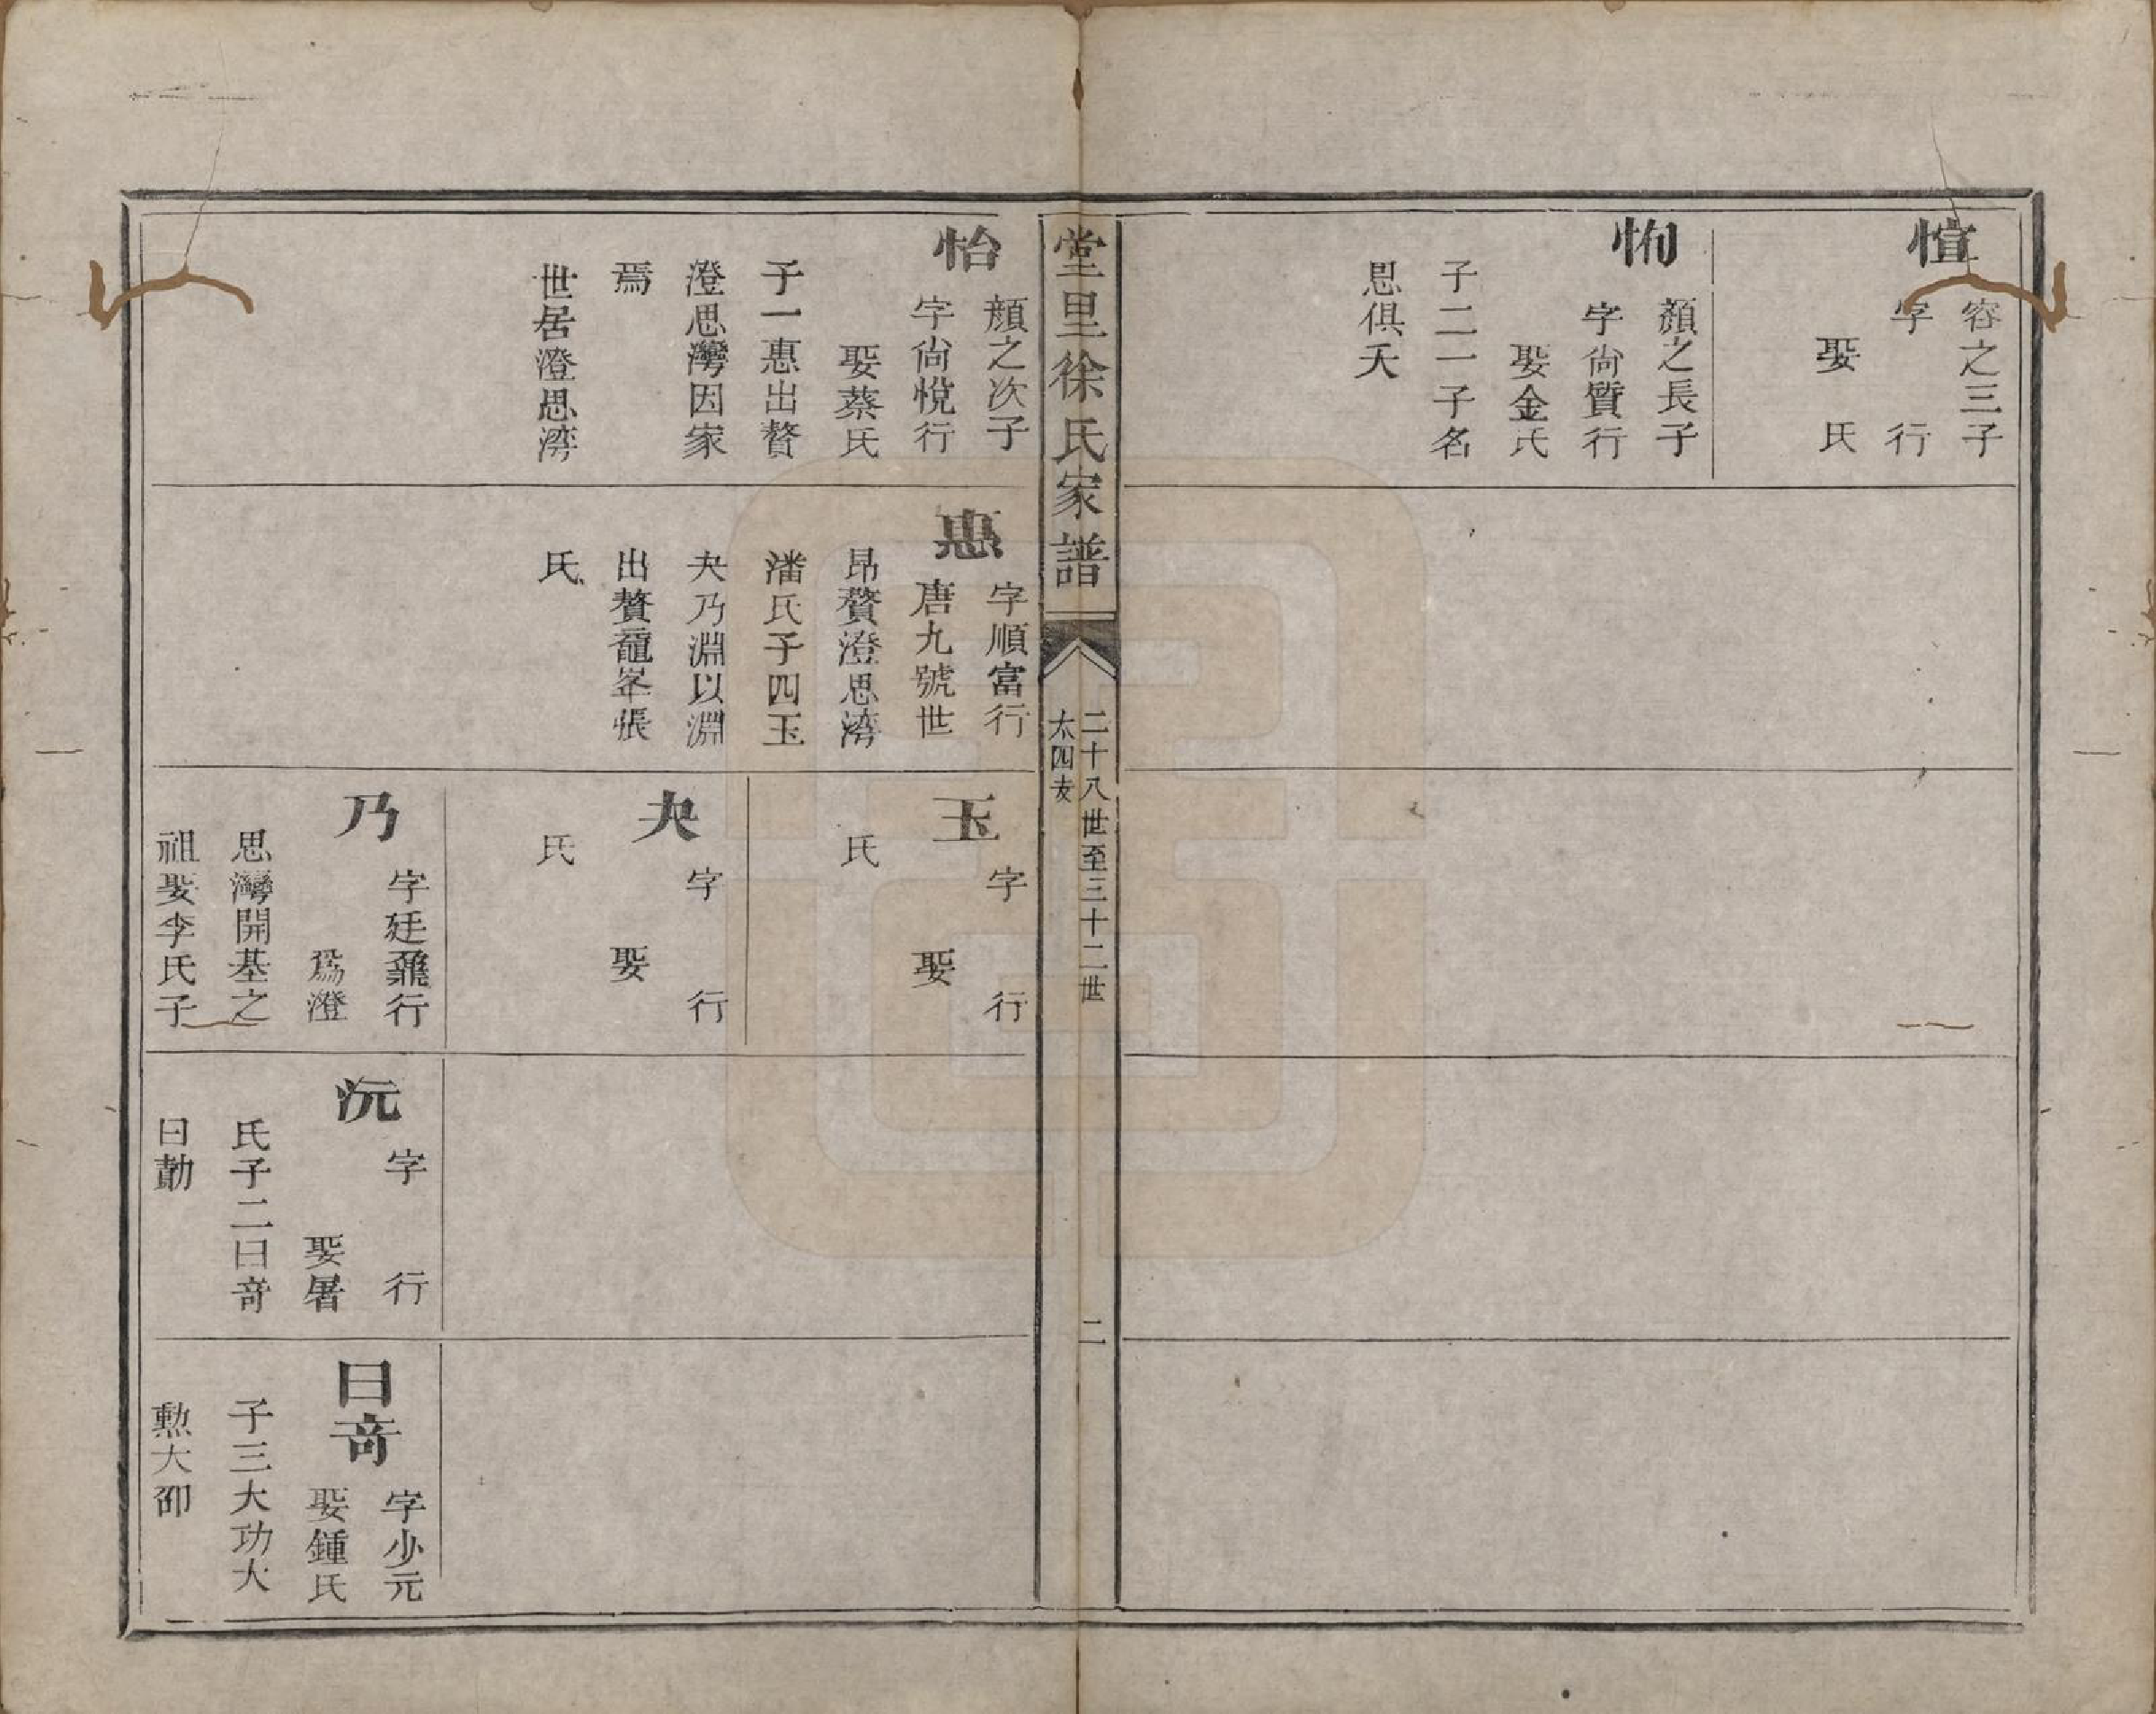 愃
容之三子
字　行
娶　氏
恂
顏之長子
字尙質行
娶金氏
子二一子名
思俱夭
堂里徐氏家譜
二十八世至三十二世
太四支
二
怡
顏之次子
字尙悅行
娶蔡氏
子一惠出贅
澄思灣因家
焉
世居澄思湾
惠
字順富行
唐九號世
昂贅澄思湾
潘氏子四玉
夬乃淵以淵
出贅黿峯張
氏
玉
字　行
娶
氏
夬
字　行
娶
氏
乃
字廷鼐行
爲澄
思灣開基之
祖娶李氏子
沅
字　行
娶屠
氏子二曰竒
曰勣
曰竒
字少元
娶鍾氏
子三大功大
勲大卲